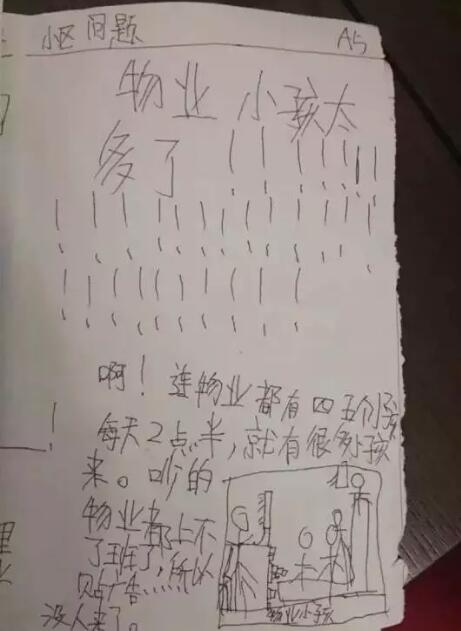 小区问题 A5
物业 小孩太
多了！！！！！！！
！！！！！！！！！！！！！！
！！！！！！！！！！
啊！连物业都有四五个小孩
每天2点半，就有很多小孩
来。吵的
物业都上不
了班了，所以
贴广告……
没人来了。
物业小孩